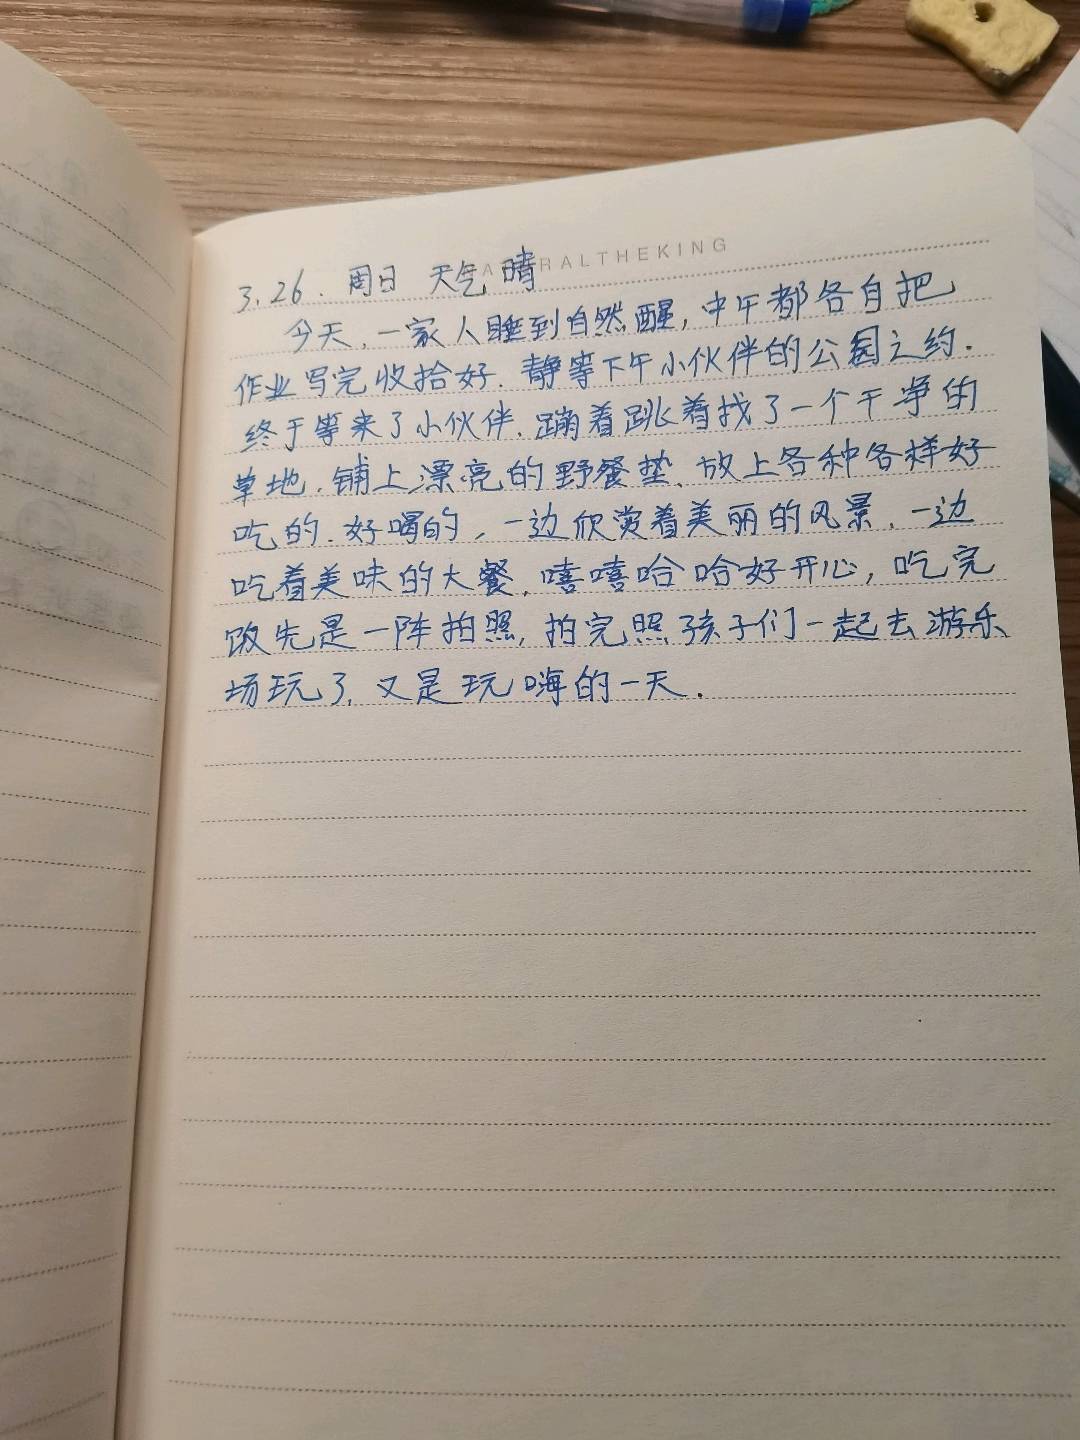 3.26. 周日 天气 晴
RALTHEKING
今天, 一家人睡到自然醒, 中午都各自把
作业写完收拾好. 静等下午小伙伴的公园之约.
终于等来了小伙伴. 蹦着跳着找了一个干净的
草地. 铺上漂亮的野餐垫. 放上各种各样好
吃的. 好喝的, 一边欣赏着美丽的风景, 一边
吃着美味的大餐, 嘻嘻哈哈好开心, 吃完
饭先是一阵拍照, 拍完照孩子们一起去游乐
场玩了, 又是玩嗨的一天.